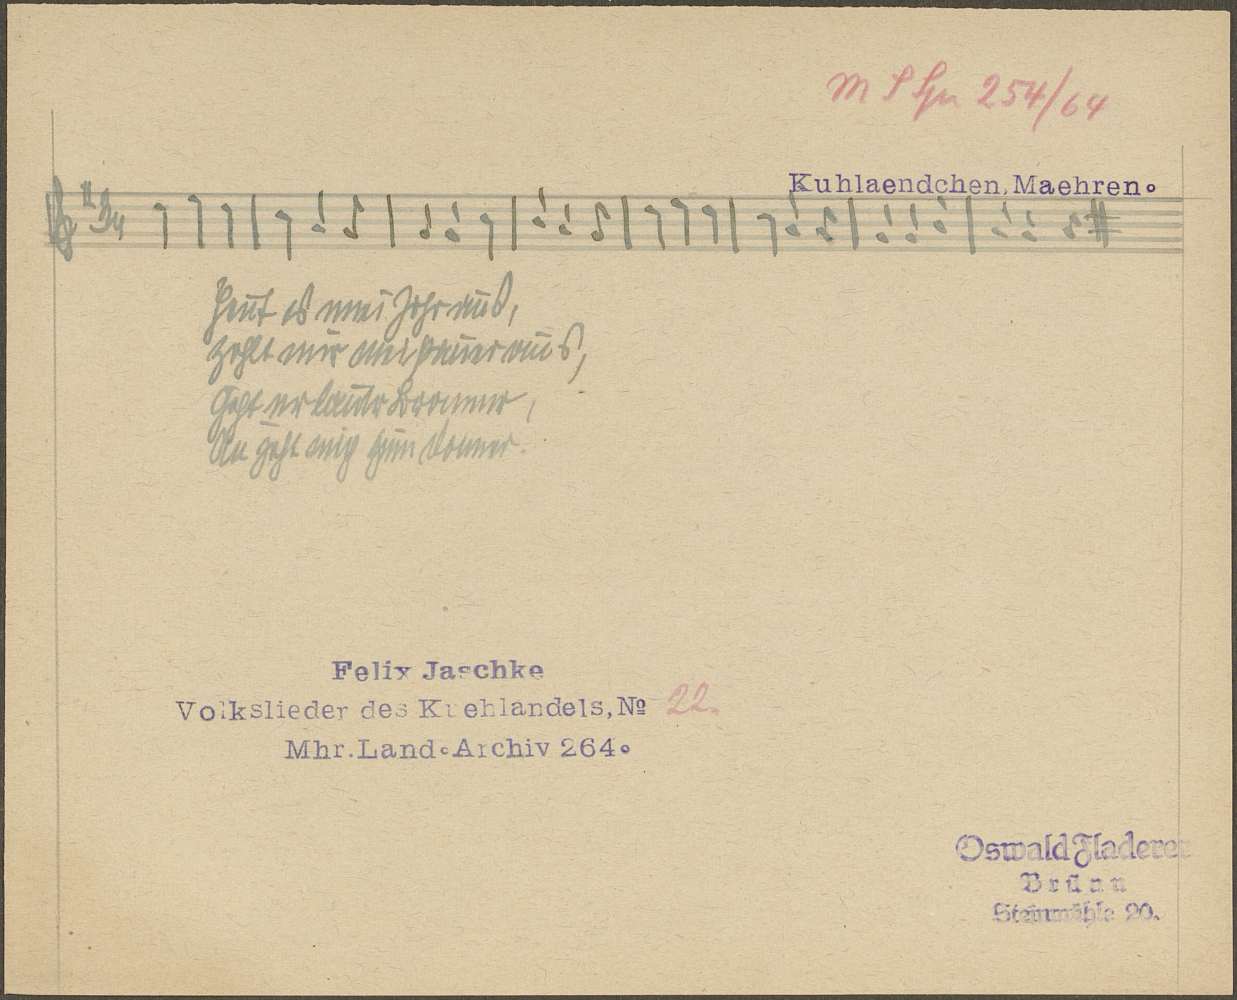 254/64
Kuhlaendchen, Maehren.
3/4
Heut es mei Johr aus,
zohlt mir mei Pauer aus,
Gogt er
An geht mig
Felix Jaschke
Volkslieder des Kuehlandels, № 22.
Mhr. Land. Archiv 264.
Oswald Fladerer
Brünn
Steinmühle 20.